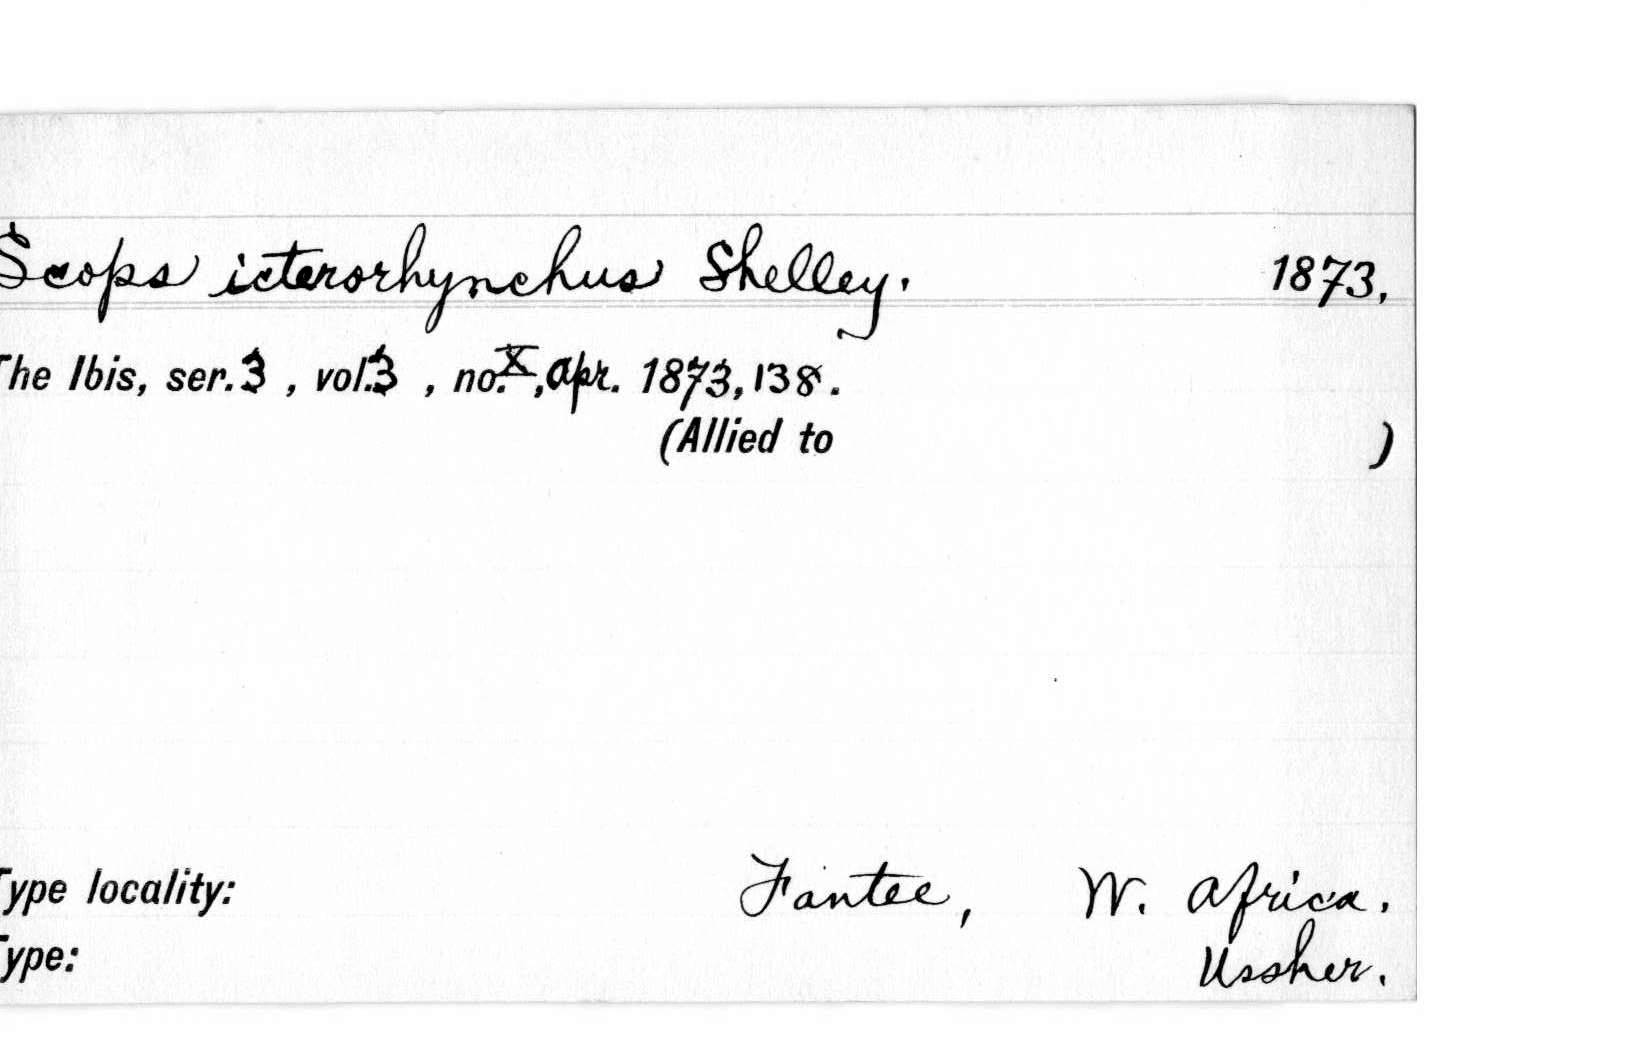 Scops icterorhynchus Shelley. 1873.
The Ibis, ser. 3 , vol. 3 , no. X , Apr. 1873, 138.
(Allied to )
Type locality: Fantee, W. Africa.
Type: Ussher.